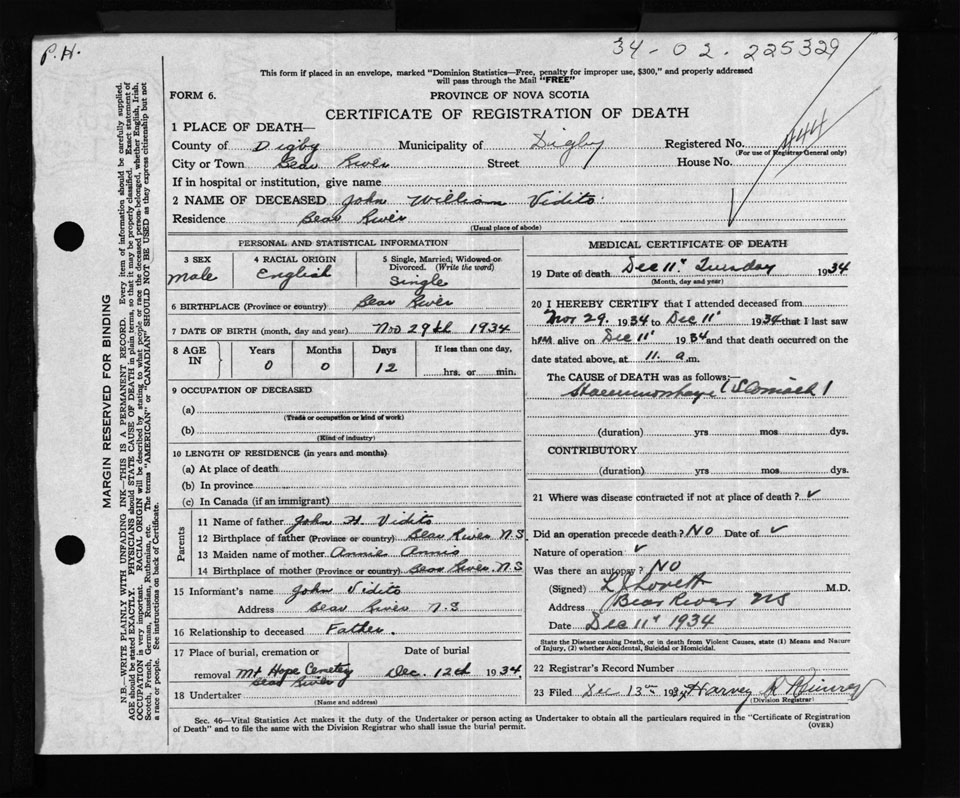 P.H.
34-02.225329
This form if placed in an envelope, marked "Dominion Statistics—Free, penalty for improper use, $300," and properly addressed
will pass through the Mail "FREE"
FORM 6.
PROVINCE OF NOVA SCOTIA
CERTIFICATE OF REGISTRATION OF DEATH
1 PLACE OF DEATH—
County of Digby Municipality of Digby Registered No. 444
(For use of Registrar General only)
City or Town Bear River Street House No.
If in hospital or institution, give name
2 NAME OF DECEASED John William Vidito
Residence Bear River
(Usual place of abode)
PERSONAL AND STATISTICAL INFORMATION
3 SEX Male
4 RACIAL ORIGIN English
5 Single, Married, Widowed or Divorced. (Write the word) Single
6 BIRTHPLACE (Province or country) Bear River
7 DATE OF BIRTH (month, day and year) Nov 29th 1934
8 AGE IN Years Months Days If less than one day,
0 0 12 hrs. or min.
9 OCCUPATION OF DECEASED
(a)
(Trade or occupation or kind of work)
(b)
(Kind of industry)
10 LENGTH OF RESIDENCE (in years and months)
(a) At place of death
(b) In province
(c) In Canada (if an immigrant)
Parents
11 Name of father John H Vidito
12 Birthplace of father (Province or country) Bear River N.S
13 Maiden name of mother Annie Annis
14 Birthplace of mother (Province or country) Bear River. N.S
15 Informant's name John Vidito
Address Bear River N.S
16 Relationship to deceased Father.
17 Place of burial, cremation or Date of burial
removal Mt Hope Cemetery Dec. 12th 1934
Bear River
18 Undertaker
(Name and address)
MEDICAL CERTIFICATE OF DEATH
19 Date of death Dec 11" Tuesday 1934
(Month, day and year)
20 I HEREBY CERTIFY that I attended deceased from
Nov 29. 1934 to Dec 11" 1934 that I last saw
him alive on Dec 11" 1934 and that death occurred on the
date stated above, at 11. a.m.
The CAUSE of DEATH was as follows:—
(Stomach)
(duration) yrs mos dys.
CONTRIBUTORY
(duration) yrs mos dys.
21 Where was disease contracted if not at place of death? ✓
Did an operation precede death? NO Date of ✓
Nature of operation ✓
Was there an autopsy? NO
(Signed) L J Lovett M.D.
Address Bear River NS
Date Dec 11" 1934
State the Disease causing Death, or in death from Violent Causes, state (1) Means and Nature
of Injury, (2) whether Accidental, Suicidal or Homicidal.
22 Registrar's Record Number
23 Filed Dec 13th 1934 Harvey
(Division Registrar)
Sec. 46—Vital Statistics Act makes it the duty of the Undertaker or person acting as Undertaker to obtain all the particulars required in the "Certificate of Registration
of Death" and to file the same with the Division Registrar who shall issue the burial permit. (OVER)
MARGIN RESERVED FOR BINDING
N.B.—WRITE PLAINLY WITH UNFADING INK—THIS IS A PERMANENT RECORD. Every item of information should be carefully supplied.
AGE should be stated EXACTLY. PHYSICIANS should STATE CAUSE OF DEATH in plain terms, so that it may be properly classified. Exact statement of
OCCUPATION is very important. RACIAL ORIGIN will be described by stating to what people or race the deceased person belonged, whether English, Irish,
Scotch, French, German, Russian, Ruthenian, etc. The terms "AMERICAN" or "CANADIAN" SHOULD NOT BE USED as they express citizenship but not
a race or people. See instructions on back of Certificate.